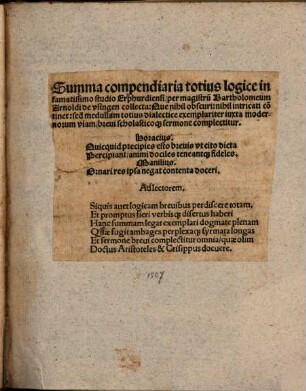 Summa compendiaria totius logice in
famatissimo studio Erphurdiensi per magistrū Bartholomeum
Arnoldi de vsingen collecta: Que nihil obscuri: nihil intricati cō
tinet: sed medullam totius dialectice exemplariter iuxta moder-
norum viam, breui scholastico q̃ sermone complectitur.
Horacius.
Quicquid precipies esto breuis vt cito dicta
Percipiant animi dociles teneantq; fideles.
Manilius.
Ornari res ipsa negat contenta doceri,
Ad lectorem.
Siquis auet logicam breuibus perdiscere totam,
Et promptus fieri verbisq; disertus haberi
Hanc summam legat exemplari dogmate plenam
Quæ fugit ambages perplexaq; syrmata longas
Et sermone breui complectitur omnia, quæ olim
Doctus Aristoteles & Crisippus docuere.
1507